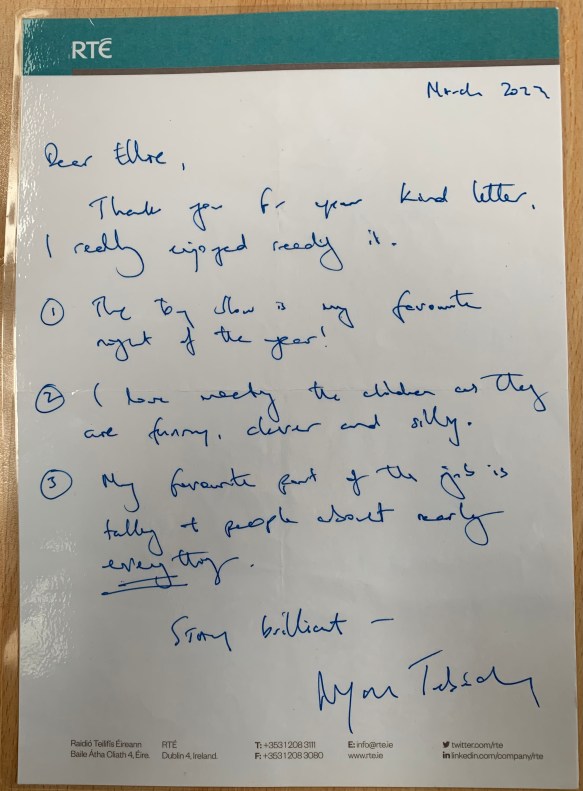 RTÉ
March 2023
Dear Ellie,
Thank you for your kind letter.
I really enjoyed reading it.
① The Toy Show is my favourite
night of the year!
② I love meeting the children as they
are funny, clever and silly.
③ My favourite part of the job is
talking to people about nearly
everything.
Stay brilliant –
Ryan Tubridy
Raidió Teilifís Éireann
Baile Átha Cliath 4, Éire.
RTÉ
Dublin 4, Ireland.
T: +353 1 208 3111
F: +353 1 208 3080
E: info@rte.ie
www.rte.ie
twitter.com/rte
linkedin.com/company/rte